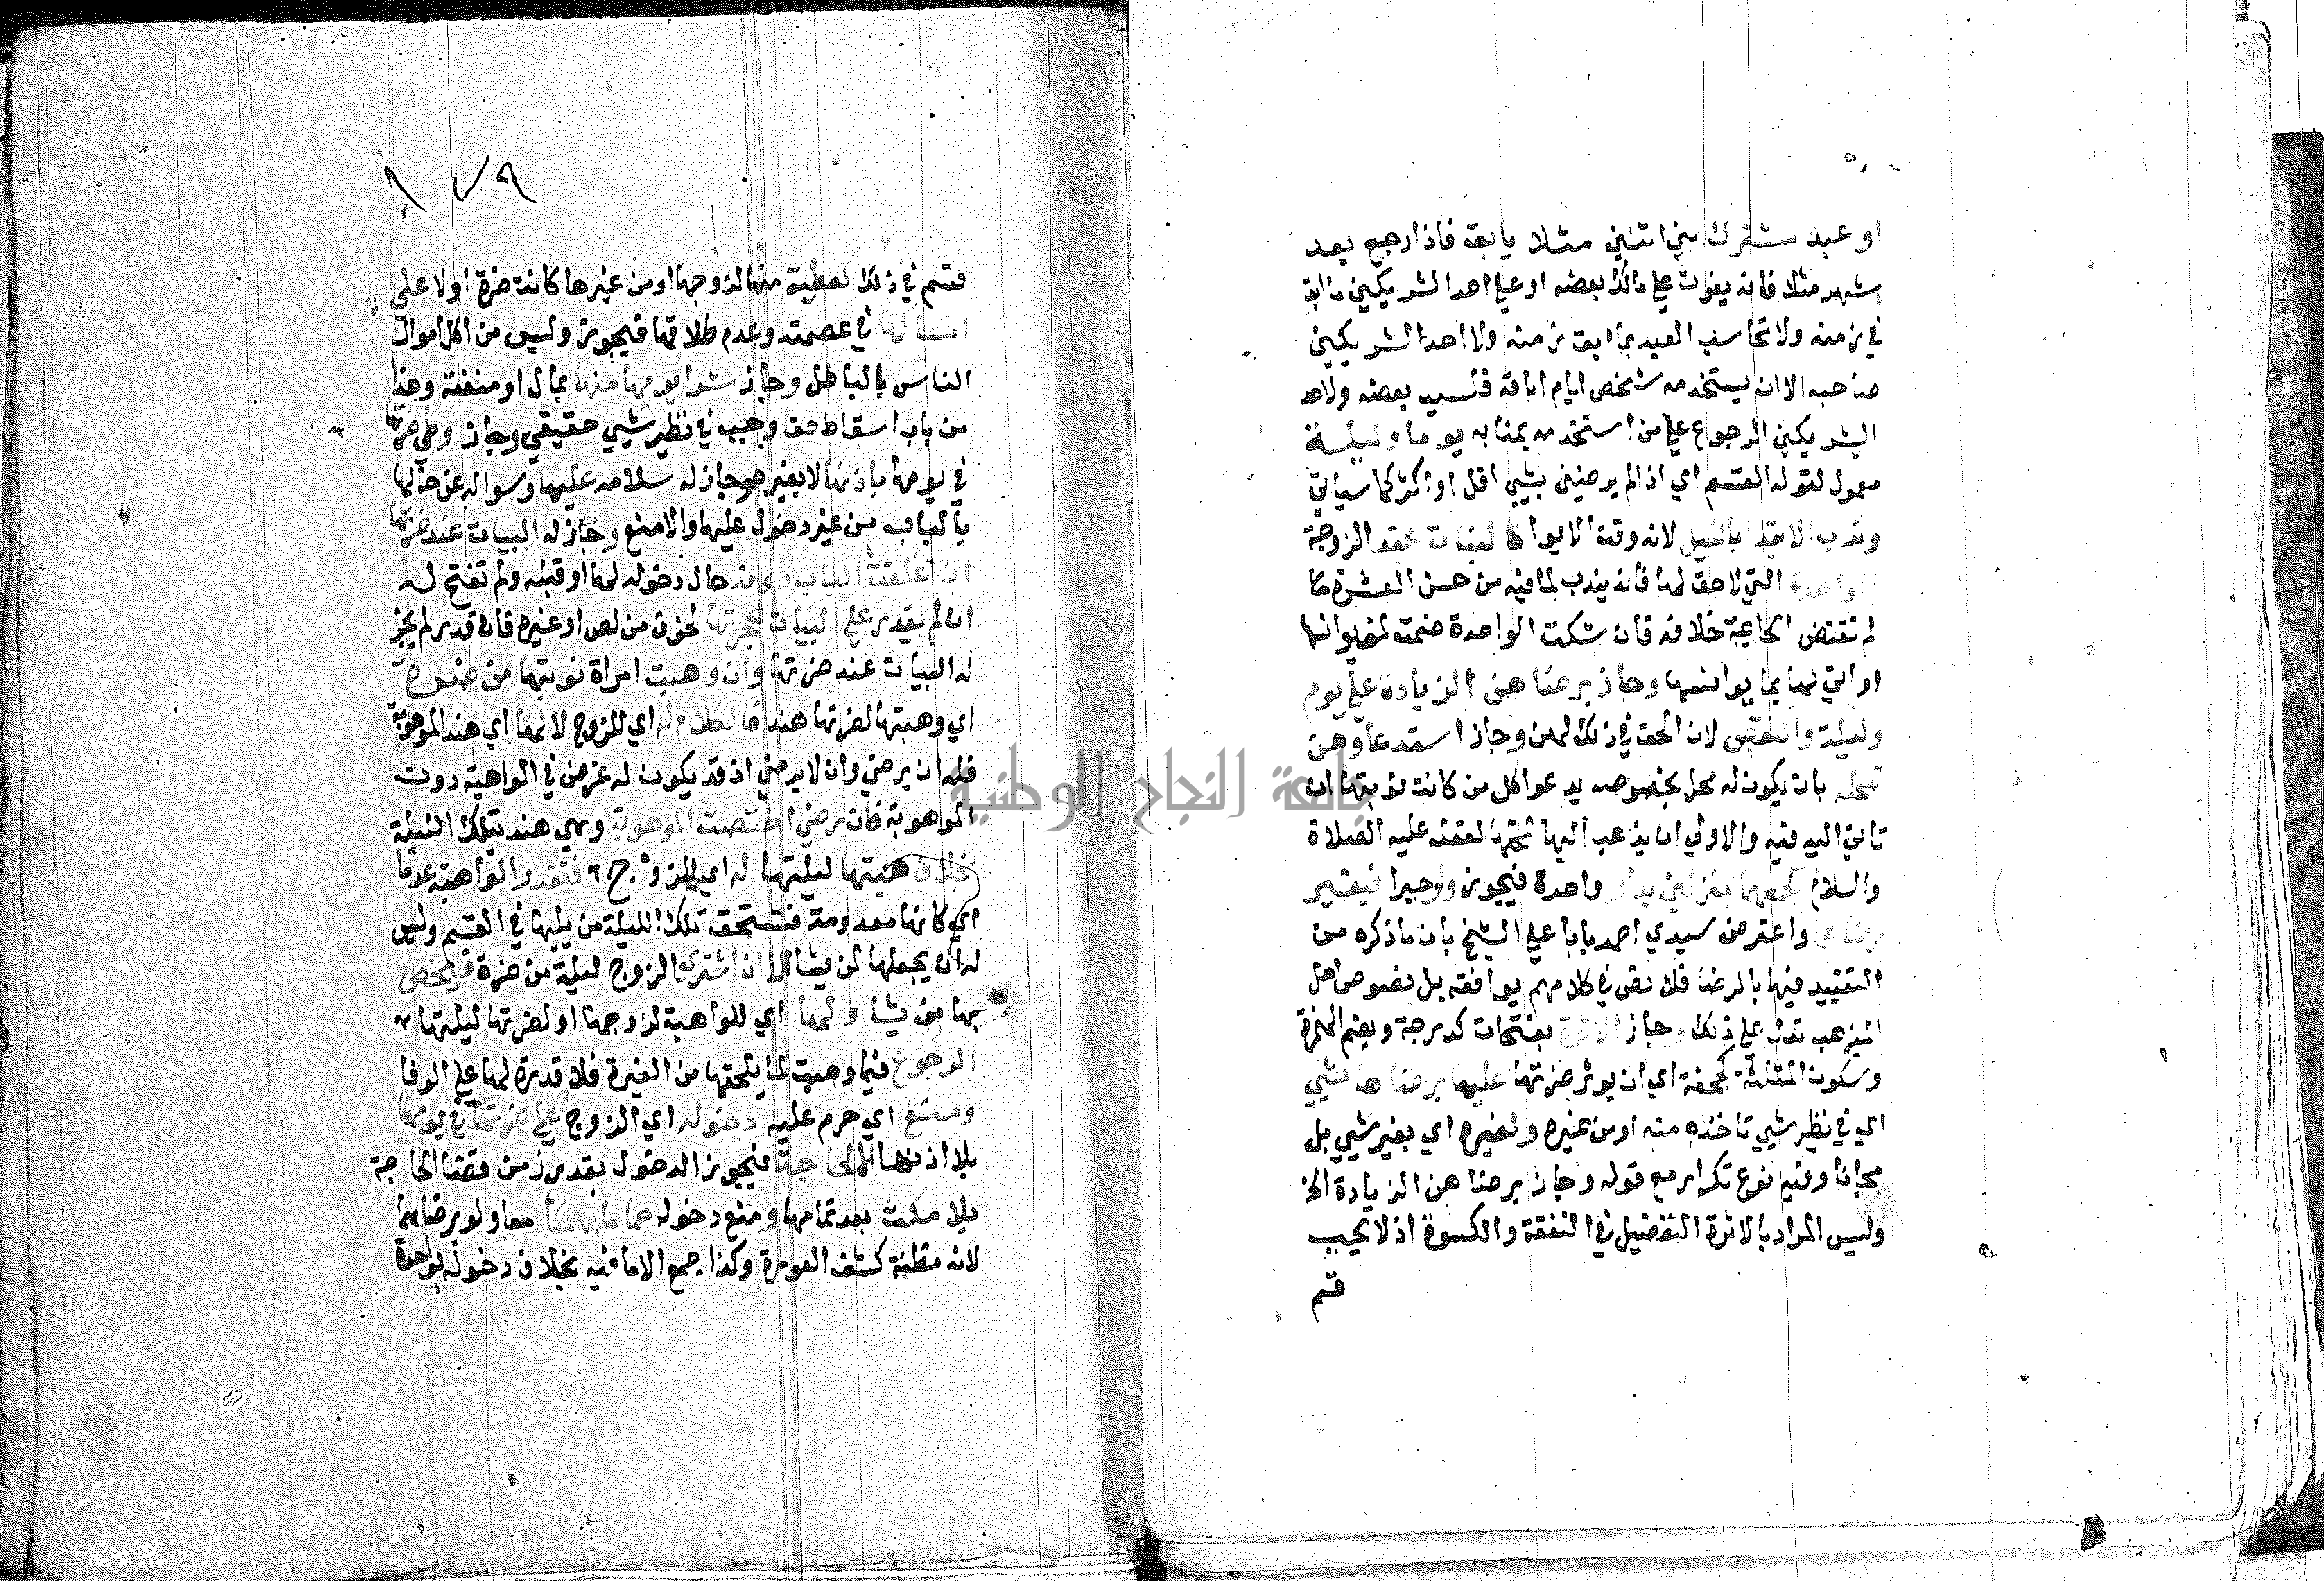 او عبد مشترك بين اثنين مثلا يابق فاذا رجع بعد
شهر مثلا فانه يفوت على مالك بعضه او على احد الشريكين ما ابق
في زمنه ولا تحاسب العبد بما ابق زمنه ولا احد الشريكين
صاحبه الا ان يستخدمه شخص ايام اباقه فلسيد بعضه ولاحد
الشريكين الرجوع على من استخدمه بمنابه يوما وليلة
معمول لقوله القسم اي اذا لم يرضين بشيء اقل او اكثر كما سياتي
وندب الابتدا بالليل لانه وقت الايواء كالبيات عند الزوجة
الواحدة التي لا حق لها فانه يندب لما فيه من حسن العشرة ما
لم تقتض الحاجة خلافه فان شكت الواحدة ضمت لمن يوانسها
او اتى لها بما يوانسها وجاز برضاهن الزيادة على يوم
وليلة والنقص لان الحق في ذلك لهن وجاز استدعاوهن
محله بان يكون له محل بخصوصه يدعو اكل من كانت نوبتها ان
تاتي اليه فيه والاولى ان يذهب اليها لفعله عليه الصلاة
والسلام كجمعهما منزلين بدار واحدة فيجوز ولو جبرا فيقسم
برضاهما واعترض سيدي احمد بابا على الشيخ بان ما ذكره من
التقييد فيها بالرضا فلا نص في كلامهم يوافقه بل نصوص اهل
المذهب تدل على ذلك وجاز الاثرة بفتحات كدرجة وبضم الهمزة
وسكون المثلثة كحفنة اي ان يوثر ضرتها عليها برضاها بشي
اي في نظير شيي تاخذه منه او من غيره ولغيره اي بغير شيي بل
مجانا وفيه نوع تكرار مع قوله وجاز برضاهن الزيادة الخ
وليس المراد بالاثرة التفضيل في النفقة والكسوة اذ لا يجب
قسم
١٧٩
قسم في ذلك كعطية منها لزوجها او من غيرها كانت ضرة او لا على
امساكها في عصمته وعدم طلاقها فيجوز وليس من اكل اموال
الناس بالباطل وجاز شرا يومها منها بمال او منفعة وهذا
من باب اسقاط حق وجب في نظير شيي حقيقي وجاز وطي ضرتها
في يومها باذنها لا بغيره وجاز له سلامه عليها وسواله عن حالها
بالباب من غير دخول عليها والا منع وجاز له البيات عند ضرتها
ان اغلقت الباب دونه حال دخوله لها او قبله ولم تفتح له
ان لم يقدر على البيات بحجرتها لخوف من لص او غيره فان قدر لم يجز
له البيات عند ضرتها وان وهبت امراة نوبتها من ضرة
اي وهبتها لضرتها هند فالكلام له اي للزوج لا لها اي هند الموهوبة
فله ان يرضي وان لا يرضي اذ قد يكون له غرض في الواهبة دون
الموهوبة فان رضي اختصت الموهوبة وهي هند بتلك الليلة
بخلاف هبتها ليلتها له اي للزوج فتقدر الواهبة عدما
اي كانها معدومة فتستحق تلك الليلة من يليها في القسم وليس
له ان يجعلها لمن يشا لا ان اشترى الزوج ليلة من ضرة فيخص
بها من يشا ولها اي للواهبة لزوجها او لضرتها ليلتها
الرجوع فيما وهبت لما يلحقها من الغيرة فلا قدرة لها على الوفا
ومنع اي حرم عليه دخوله اي الزوج على ضرتها في يومها
بلا اذنها الا لحاجة فيجوز الدخول بقدر زمن قضا الحاجة
بلا مكث بعد تمامها ومنع دخوله حماما بهما معا ولو برضاهما
لانه مظنة كشف العورة وكذا جمع الاما فيه بخلاف دخوله بواحدة
جامعة النجاح الوطنية